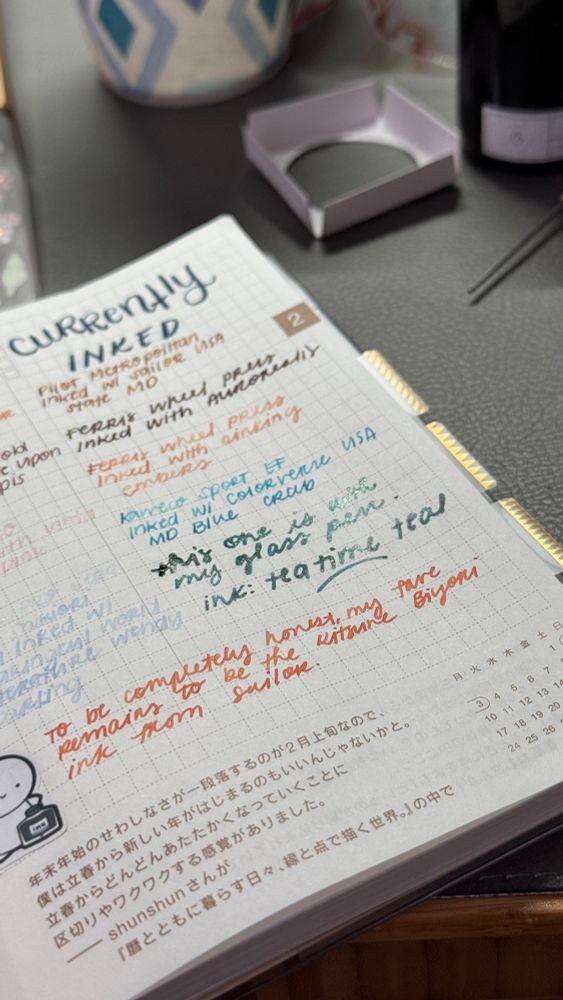 CURRENTLY
INKED
2
PILOT METROPOLITAN
INKED W/ SAILOR USA
STATE MD
FERRIS WHEEL PRESS
INKED WITH AUROREALIS
FERRIS WHEEL PRESS
INKED WITH SINKING
EMBERS
KAWECO SPORT EF
INKED W/ COLORVERSE USA
MD BLUE CRAB
this one is with
my glass pen.
ink: teatime teal
old
upon
with
pink
INKED W/
WORLD
WENDY
DARLING
TO be completely honest, my fave
remains to be the Kitsune Biyori
ink from sailor.
ink
月 火 水 木 金 土 日
1
3 4 5 6 7 8
10 11 12 13 14
17 18 19 20
24 25 26
年末年始のせわしなさが一段落するのが2月上旬なので、
僕は立春から新しい年がはじまるのもいいんじゃないかと。
立春からどんどんあたたかくなっていくことに
区切りやワクワクする感覚がありました。
── shunshunさんが
『暦とともに暮らす日々、線と点で描く世界。』の中で